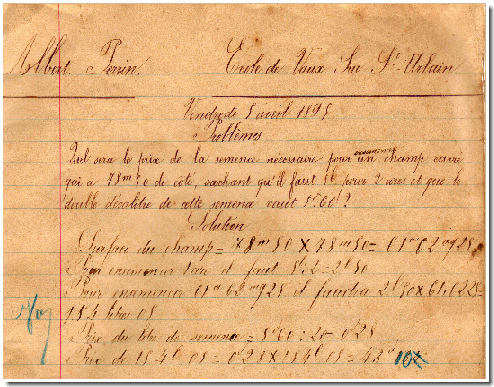 Albert Perrin. École de Vaux Sur St Urbain
Vendredi 5 avril 1895
Problèmes
Quel sera le prix de la semence nécessaire pour ensemencer un champ carré
qui a 78m50 de côté, sachant qu'il faut 5l pour 2 ares et que le
double décalitre de cette semence vaut 5f60?
Solution
Surface du champ = 78m50 X 78m50 = 61a62ca25
Pour ensemencer 1are il faut 5l:2=2l50
Pour ensemencer 61a62ca25 il faudra 2l50X61,6225=
154 litres 05
Prix du litre de semence = 5f60:20=0f28
Prix de 154l05=0f28X154l05=43f
10